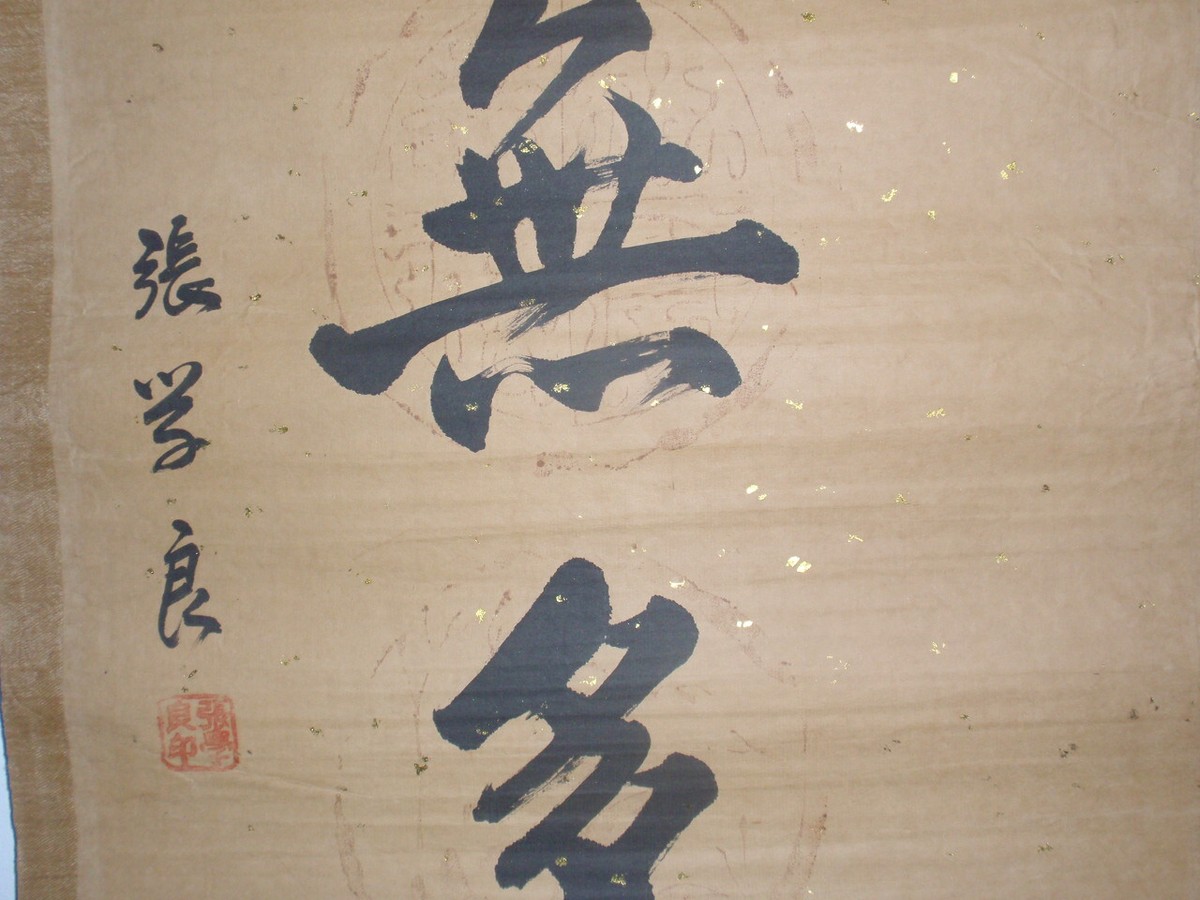 無多
張学良
張學
良印